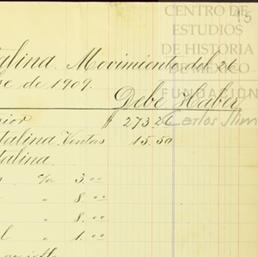 CENTRO DE
ESTUDIOS
DE HISTORIA
DE MEXICO
FUNDACIÓN
Carlos Slim
talina Movimiento del 26
de 1909.
Debe Haber
rior $ 273.26
talina Ventas 15.50
talina
c/u 3.00
" 8.00
" 8.00
l " 1.00